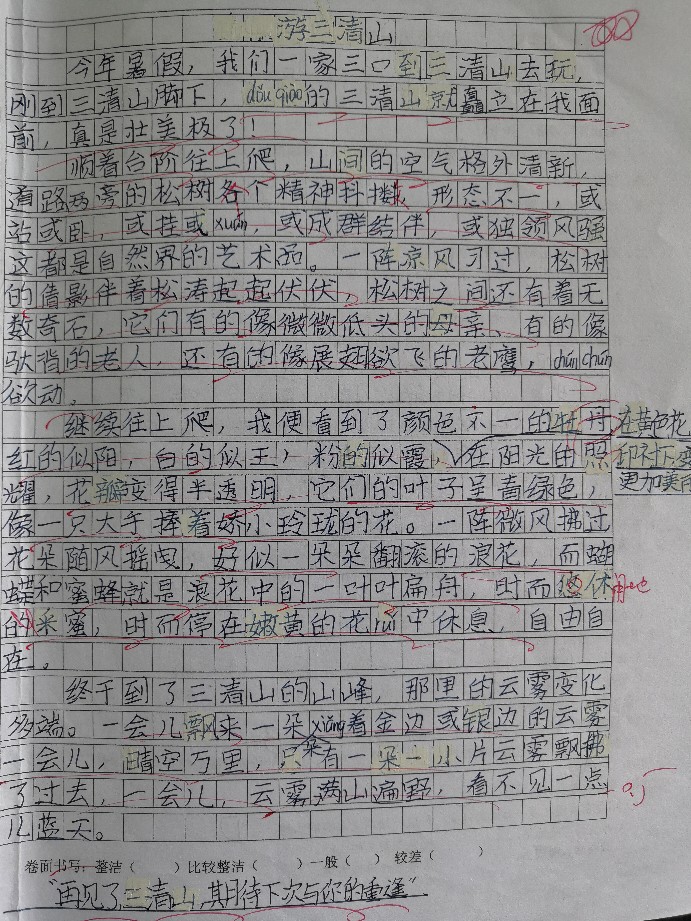 游三清山
今年暑假，我们一家三口到三清山去玩，
刚到三清山脚下，dǒu qiào的三清山就矗立在我面
前，真是壮美极了！
顺着台阶往上爬，山间的空气格外清新，
道路两旁的松树各个精神抖擞，形态不一，或
站或卧，或挂或xuán，或成群结伴，或独领风骚
这都是自然界的艺术品。一阵凉风刁过，松树
的倩影伴着松涛起起伏伏，松树之间还有着无
数奇石，它们有的像微微低头的母亲、有的像
驮背的老人，还有的像展翅欲飞的老鹰，chǔn chǔn
欲动。
继续往上爬，我便看到了颜色不一的牡丹
在黄色花
红的似阳，白的似玉，粉的似霞，在阳光的照
耀，花瓣变得半透明，它们的叶子呈青绿色，
更加美
像一只大手捧着娇小玲珑的花。一阵微风拂过
花朵随风摇曳，好似一朵朵翻滚的浪花，而蝴
蝶和蜜蜂就是浪花中的一叶叶扁舟，时而
的采蜜，时而停在嫩黄的花ruǐ中休息，自由自
在。
终于到了三清山的山峰，那里的云雾变化
多端。一会儿飘来一朵xiāng着金边或银边的云雾
一会儿，晴空万里，只有一朵一小片云雾飘拂
了过去，一会儿，云雾满山遍野，看不见一点
儿蓝天。
卷面书写：整洁（ ）比较整洁（ ）一般（ ） 较差（ ）
“再见了，三清山，期待下次与你的重逢”